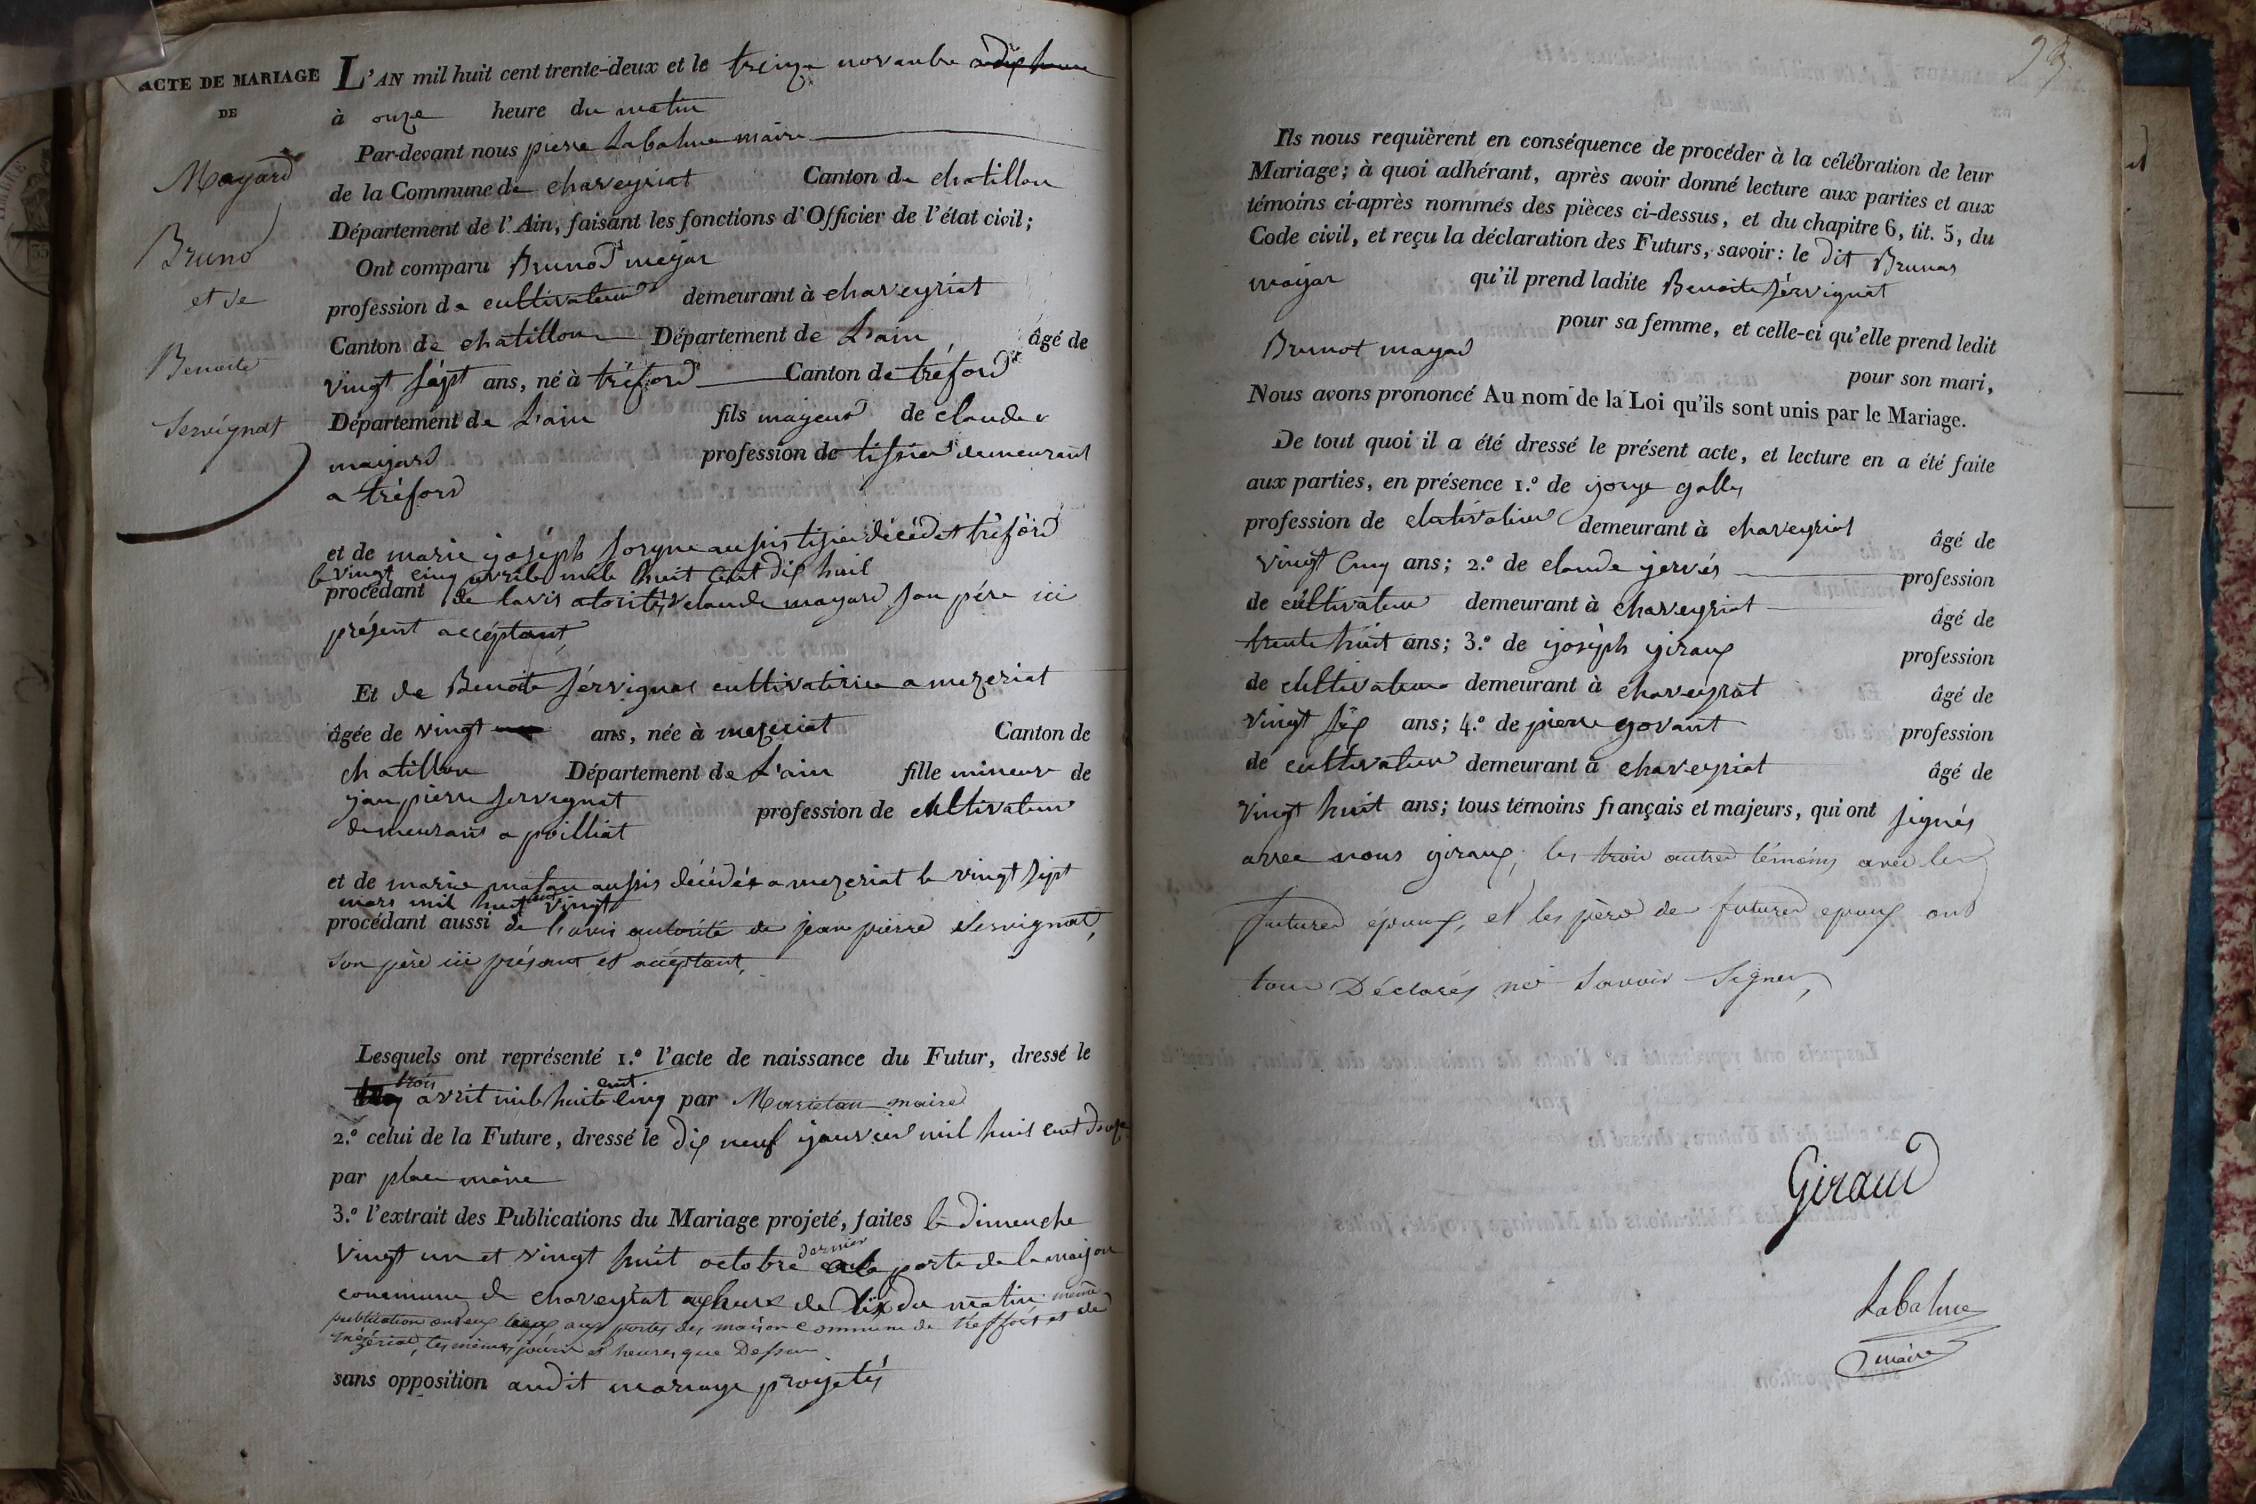 ACTE DE MARIAGE
DE
Mayard
Bruno
et de
Benoite
Servignat
L'AN mil huit cent trente-deux et le treize novembre
à onze heure du matin
Par-devant nous pierre Labalme maire
de la Commune de chaveyriat Canton de chatillon
Département de l'Ain, faisant les fonctions d'Officier de l'état civil;
Ont comparu Brunod mayar
profession de cultivateur demeurant à chaveyriat
Canton de chatillon Département de L'ain, âgé de
vingt sépt ans, né à tréford Canton de tréford
Département de L'ain fils majeur de claude
mayard profession de tissier demeurant
a tréford
et de marie joséph aussis tisier décédé a tréford
le vingt cinq avrile mile huit cent dix huit
procédant de lavis claude mayard son pére ici
présent accéptant,
Et de Benoite sérvignat cultivatrice a mezeriat
âgée de vingt ans, née à mezeriat Canton de
chatillon Département de L'ain fille mineure de
jan pierre servignat profession de cultivateur
demeurant a poilliat
et de marie aussis décédés a mezeriat le vingt sépt
mars mil huit cent vingt
procédant aussi de l'avis autorité de jean pierre Servignat,
son père ici présent et accéptant,
Lesquels ont représenté 1.º l'acte de naissance du Futur, dressé le
trois avril mil huit cent cinq par Marietan maire
2.º celui de la Future, dressé le dix neuf janvier mil huit cent douze
par place maire
3.º l'extrait des Publications du Mariage projeté, faites le dimenche
vingt un et vingt huit octobre dernier a la porte de la maison
commune de chaveyriat a heure de dix du matin même
publication ont eux lieux aux portes des maison commune de tréffort et de
mézériat, les mêmes jours et heures que Dessus
sans opposition audit mariage projetés
93.
Ils nous requièrent en conséquence de procéder à la célébration de leur
Mariage; à quoi adhérant, après avoir donné lecture aux parties et aux
témoins ci-après nommés des pièces ci-dessus, et du chapitre 6, tit. 5, du
Code civil, et reçu la déclaration des Futurs, savoir: le dit Brunot
mayar qu'il prend ladite Benoite sérvignat
pour sa femme, et celle-ci qu'elle prend ledit
Brunot mayad
pour son mari,
Nous avons prononcé Au nom de la Loi qu'ils sont unis par le Mariage.
De tout quoi il a été dressé le présent acte, et lecture en a été faite
aux parties, en présence 1.º de jorge gally
profession de cultivateur demeurant à chaveyriat âgé de
vingt cinq ans; 2.º de claude jervés profession
de cultivateur demeurant à chaveyriat âgé de
trente huit ans; 3.º de joséph giraux profession
de cultivateur demeurant à chaveyriat âgé de
vingt six ans; 4.º de pierre govant profession
de cultivateur demeurant à chaveyriat âgé de
vingt huit ans; tous témoins français et majeurs, qui ont signés
avec nous giraux, les trois autres témoins avec les
futures époux, et les père des futures époux ont
tous Déclarés ne Savoir Signer,
Giraud
Labalme
maire